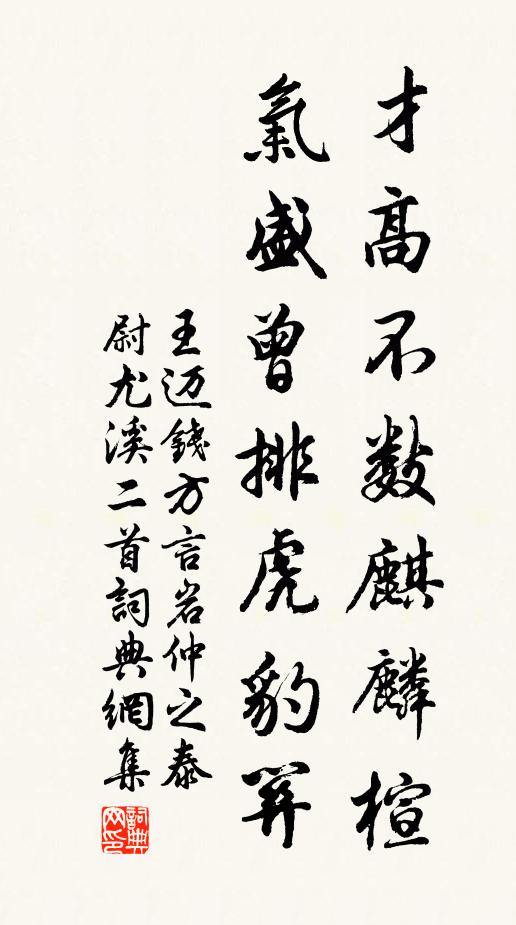 才高不数麒麟楦
氣盛曾排虎豹關
王迈錢方言岩仲之泰
尉尤溪二首詞典網集
詞典网印